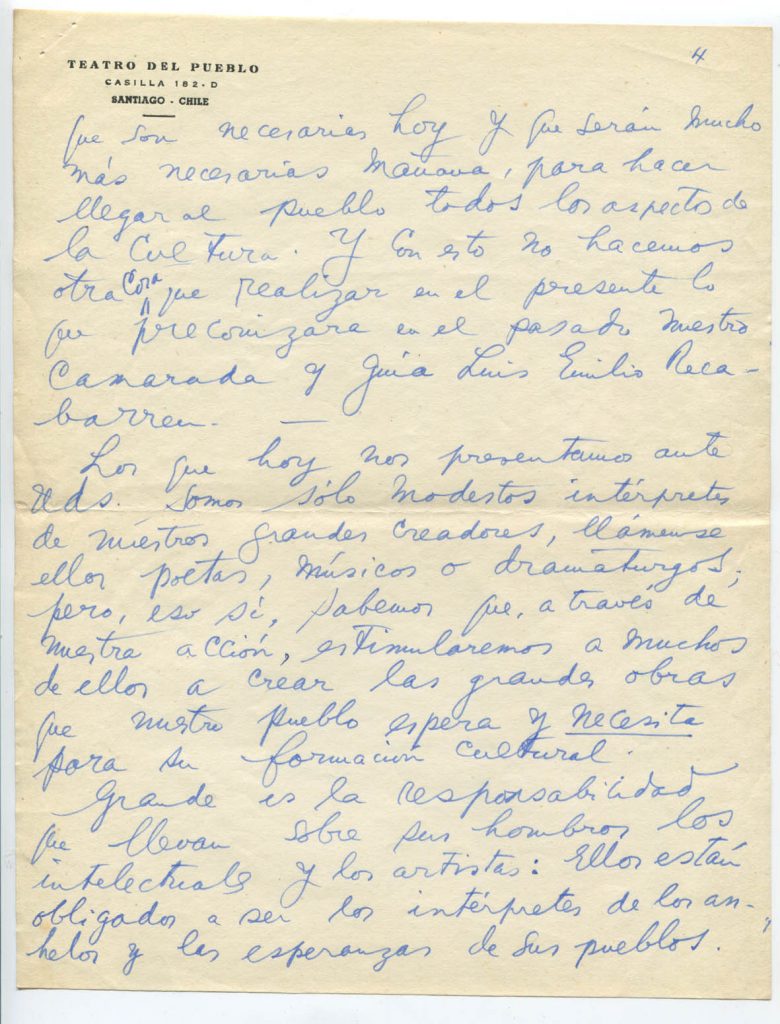 4
TEATRO DEL PUEBLO
CASILLA 182-D
SANTIAGO - CHILE
que son necesarias hoy y que serán mucho
más necesarias mañana, para hacer
llegar al pueblo todos los aspectos de
la Cultura. Y con esto no hacemos
otra cosa que realizar en el presente lo
que preconizara en el pasado nuestro
Camarada y guía Luis Emilio Reca-
barren. —
Los que hoy nos presentamos ante
Uds. somos sólo modestos intérpretes
de nuestros grandes creadores, llámense
ellos poetas, músicos o dramaturgos;
pero, eso sí, sabemos que, a través de
nuestra acción, estimularemos a muchos
de ellos a crear las grandes obras
que nuestro pueblo espera y necesita
para su formación cultural.
Grande es la responsabilidad
que llevan sobre sus hombros los
intelectuales y los artistas: Ellos están
obligados a ser los intérpretes de los an-
helos y las esperanzas de sus pueblos.